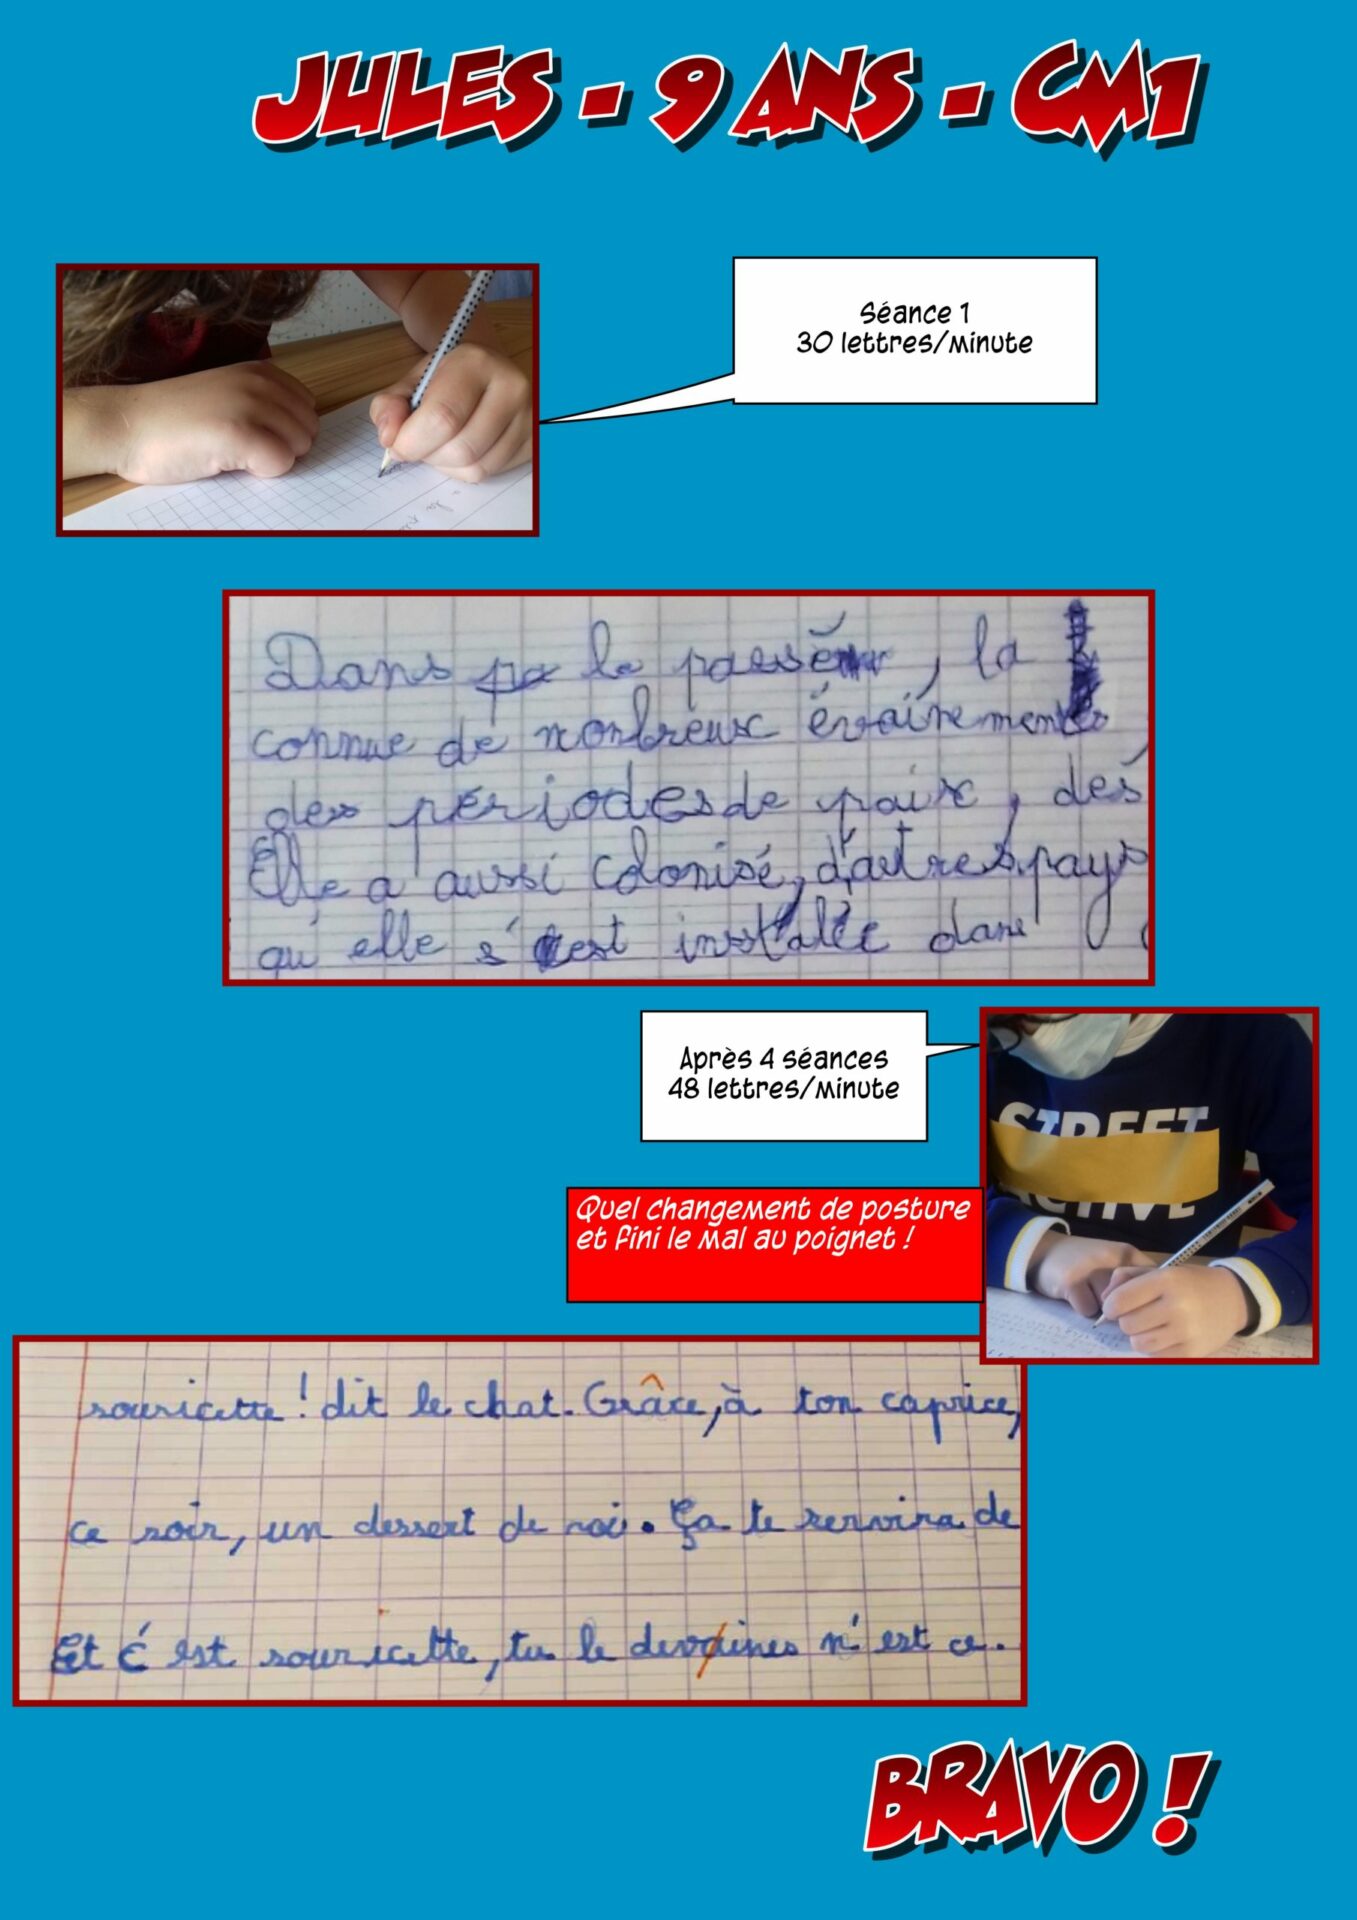 JULES - 9 ANS - CM1
Séance 1
30 lettres/minute
Dans pa le passé, la
connue de nombreux évainements
des périodes de paix, des
Elle a aussi colonisé, d'autres pays
qu'elle s'est installée dans
Après 4 séances
48 lettres/minute
STREET
ACTIVE
Quel changement de posture
et fini le mal au poignet !
souricette ! dit le chat. Grâce, à ton caprice,
ce soir, un dessert de roi. Ça te servira de
Et c'est souricette, tu le devaines n'est ce.
BRAVO !